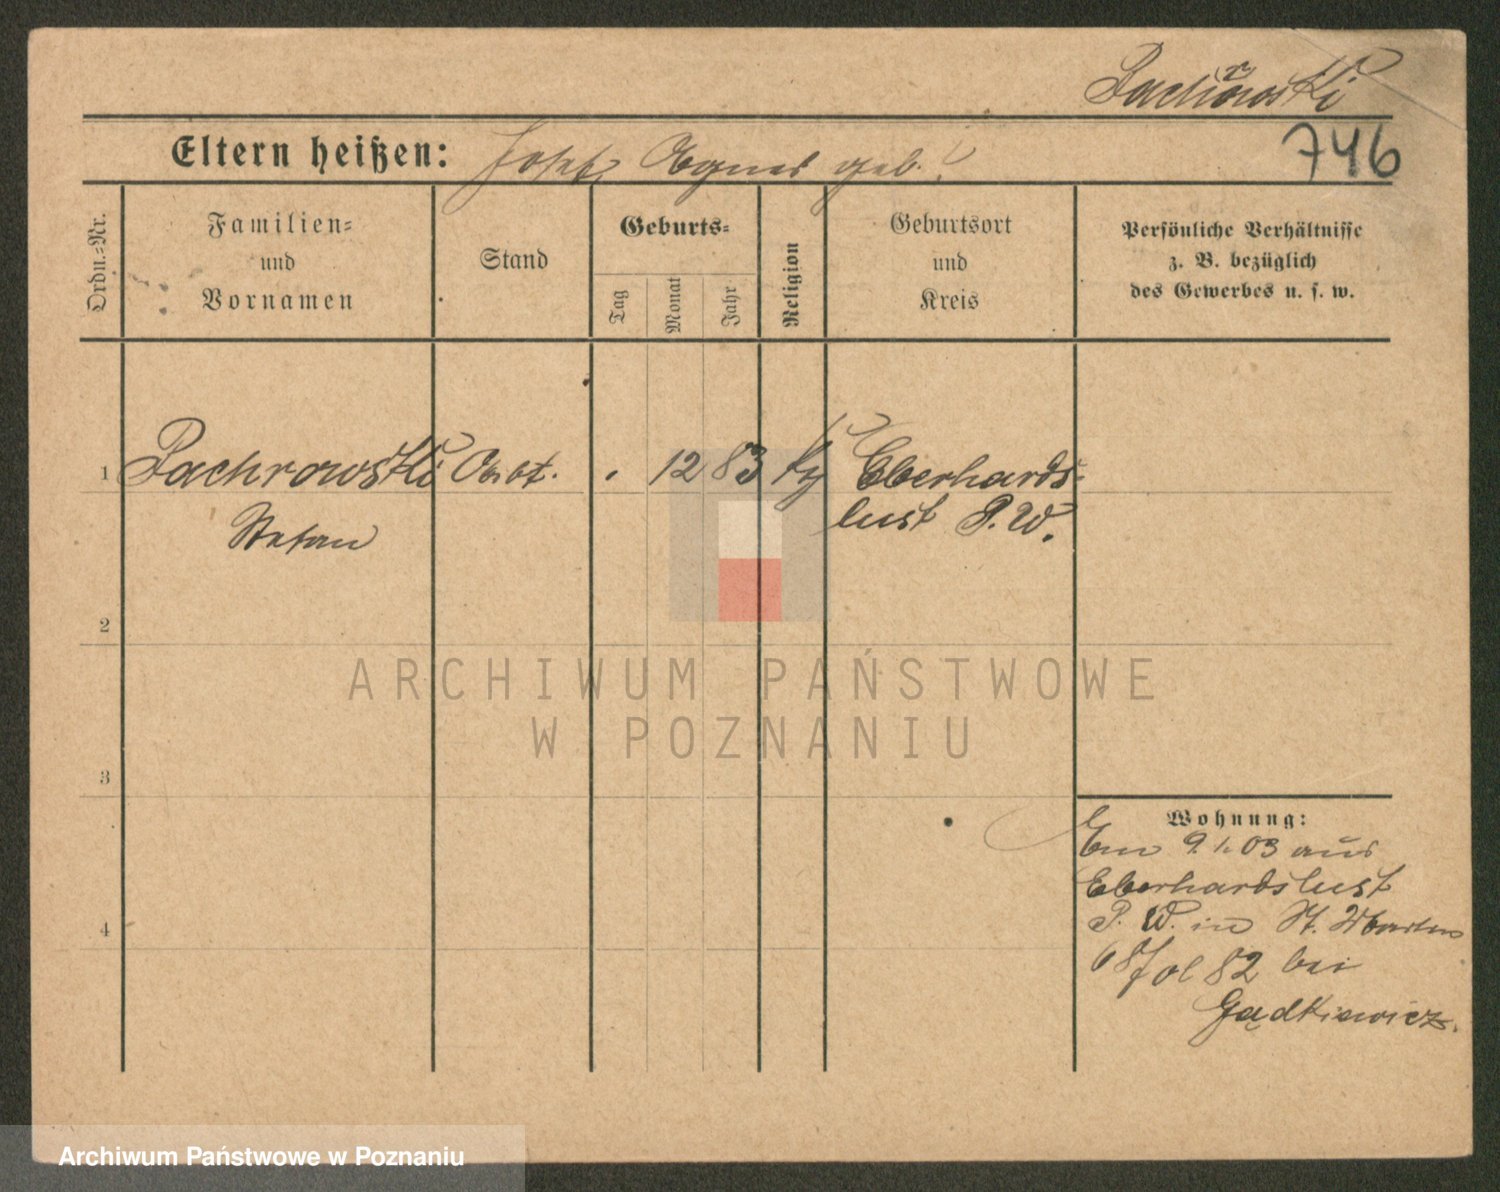 Pachorowski
Eltern heißen: Josef, Agnes geb. ?
746
Ordn.=Nr.
Familien=
und
Vornamen
Stand
Geburts=
Tag
Monat
Jahr
Religion
Geburtsort
und
Kreis
Persönliche Verhältnisse
z. B. bezüglich
des Gewerbes u. s. w.
1 Pachrowski . 12 83 Eberhards-
Stefan lust P. W.
2
3
4
Wohnung:
Em 9.1.03 aus
Eberhardslust
P. W. in St. Martin
bei
Gądkiewicz.
ARCHIWUM PAŃSTWOWE
W POZNANIU
Archiwum Państwowe w Poznaniu